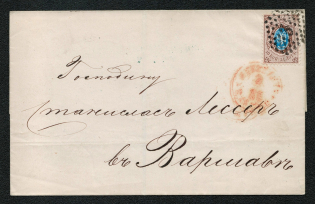 Господину
Станиславъ Лессеръ
въ Варшавѣ